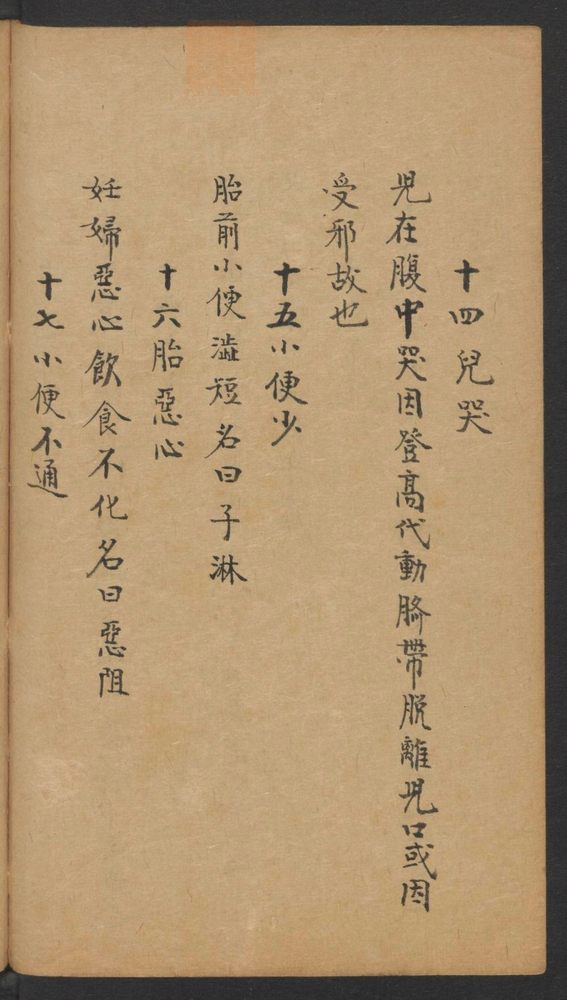 十四兒哭
児在腹中哭因登高代動臍帶脫離児口或因
受邪故也
十五小便少
胎前小便澁短名曰子淋
十六胎惡心
妊婦惡心飲食不化名曰惡阻
十七小便不通